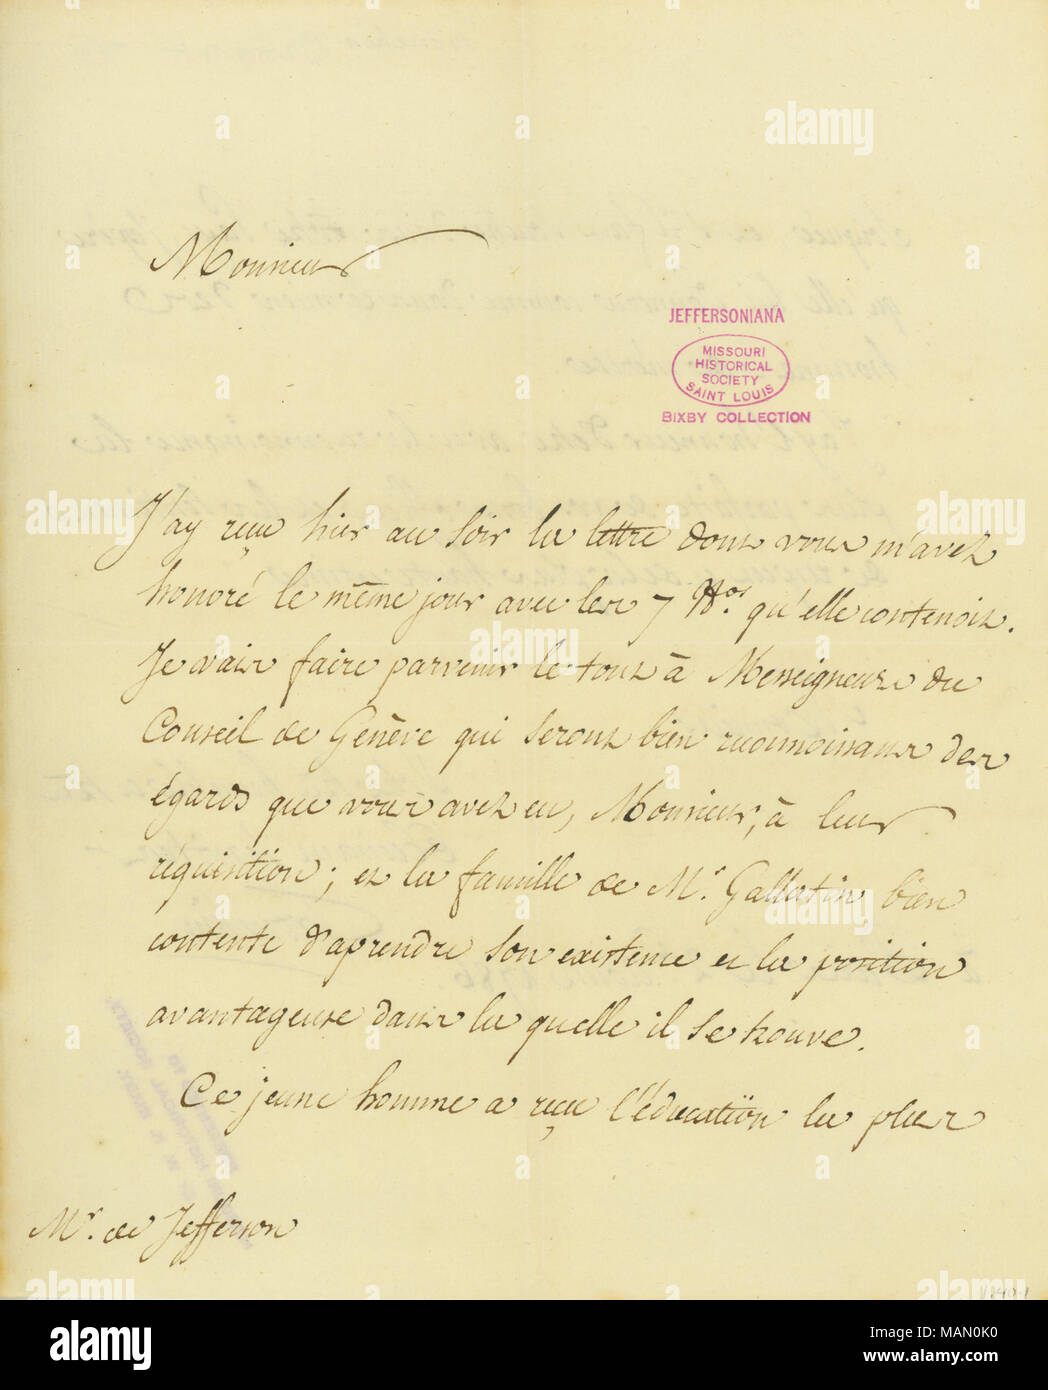 Monsieur
JEFFERSONIANA
MISSOURI
HISTORICAL
SOCIETY
SAINT LOUIS
BIXBY COLLECTION
J'ay reçu hier au soir la lettre dont vous m'avez
honoré le même jour avec les 7 Nos. qu'elle contenoit.
Je vais faire parvenir le tout à Messeigneurs du
Conseil de Genève qui seront bien reconnoissans des
égards que vous avez eu, Monsieur, à leur
réquisition; et la famille de Mr. Gallatin bien
contente d'aprendre son existence et la position
avantageuse dans la quelle il se trouve.
Ce jeune homme a reçu l'éducatïon la plus
Mr. de Jefferson
alamy
Image ID: MAN0K0
www.alamy.com